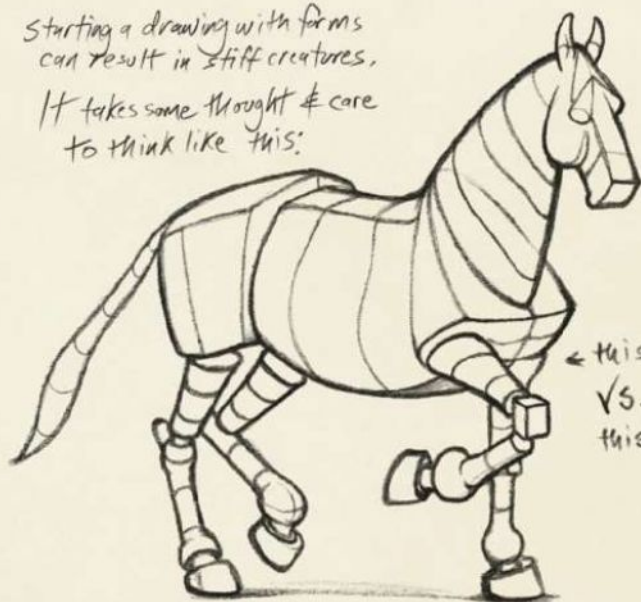 Starting a drawing with forms
can result in stiff creatures.
It takes some thought & care
to think like this:
← this
VS.
this